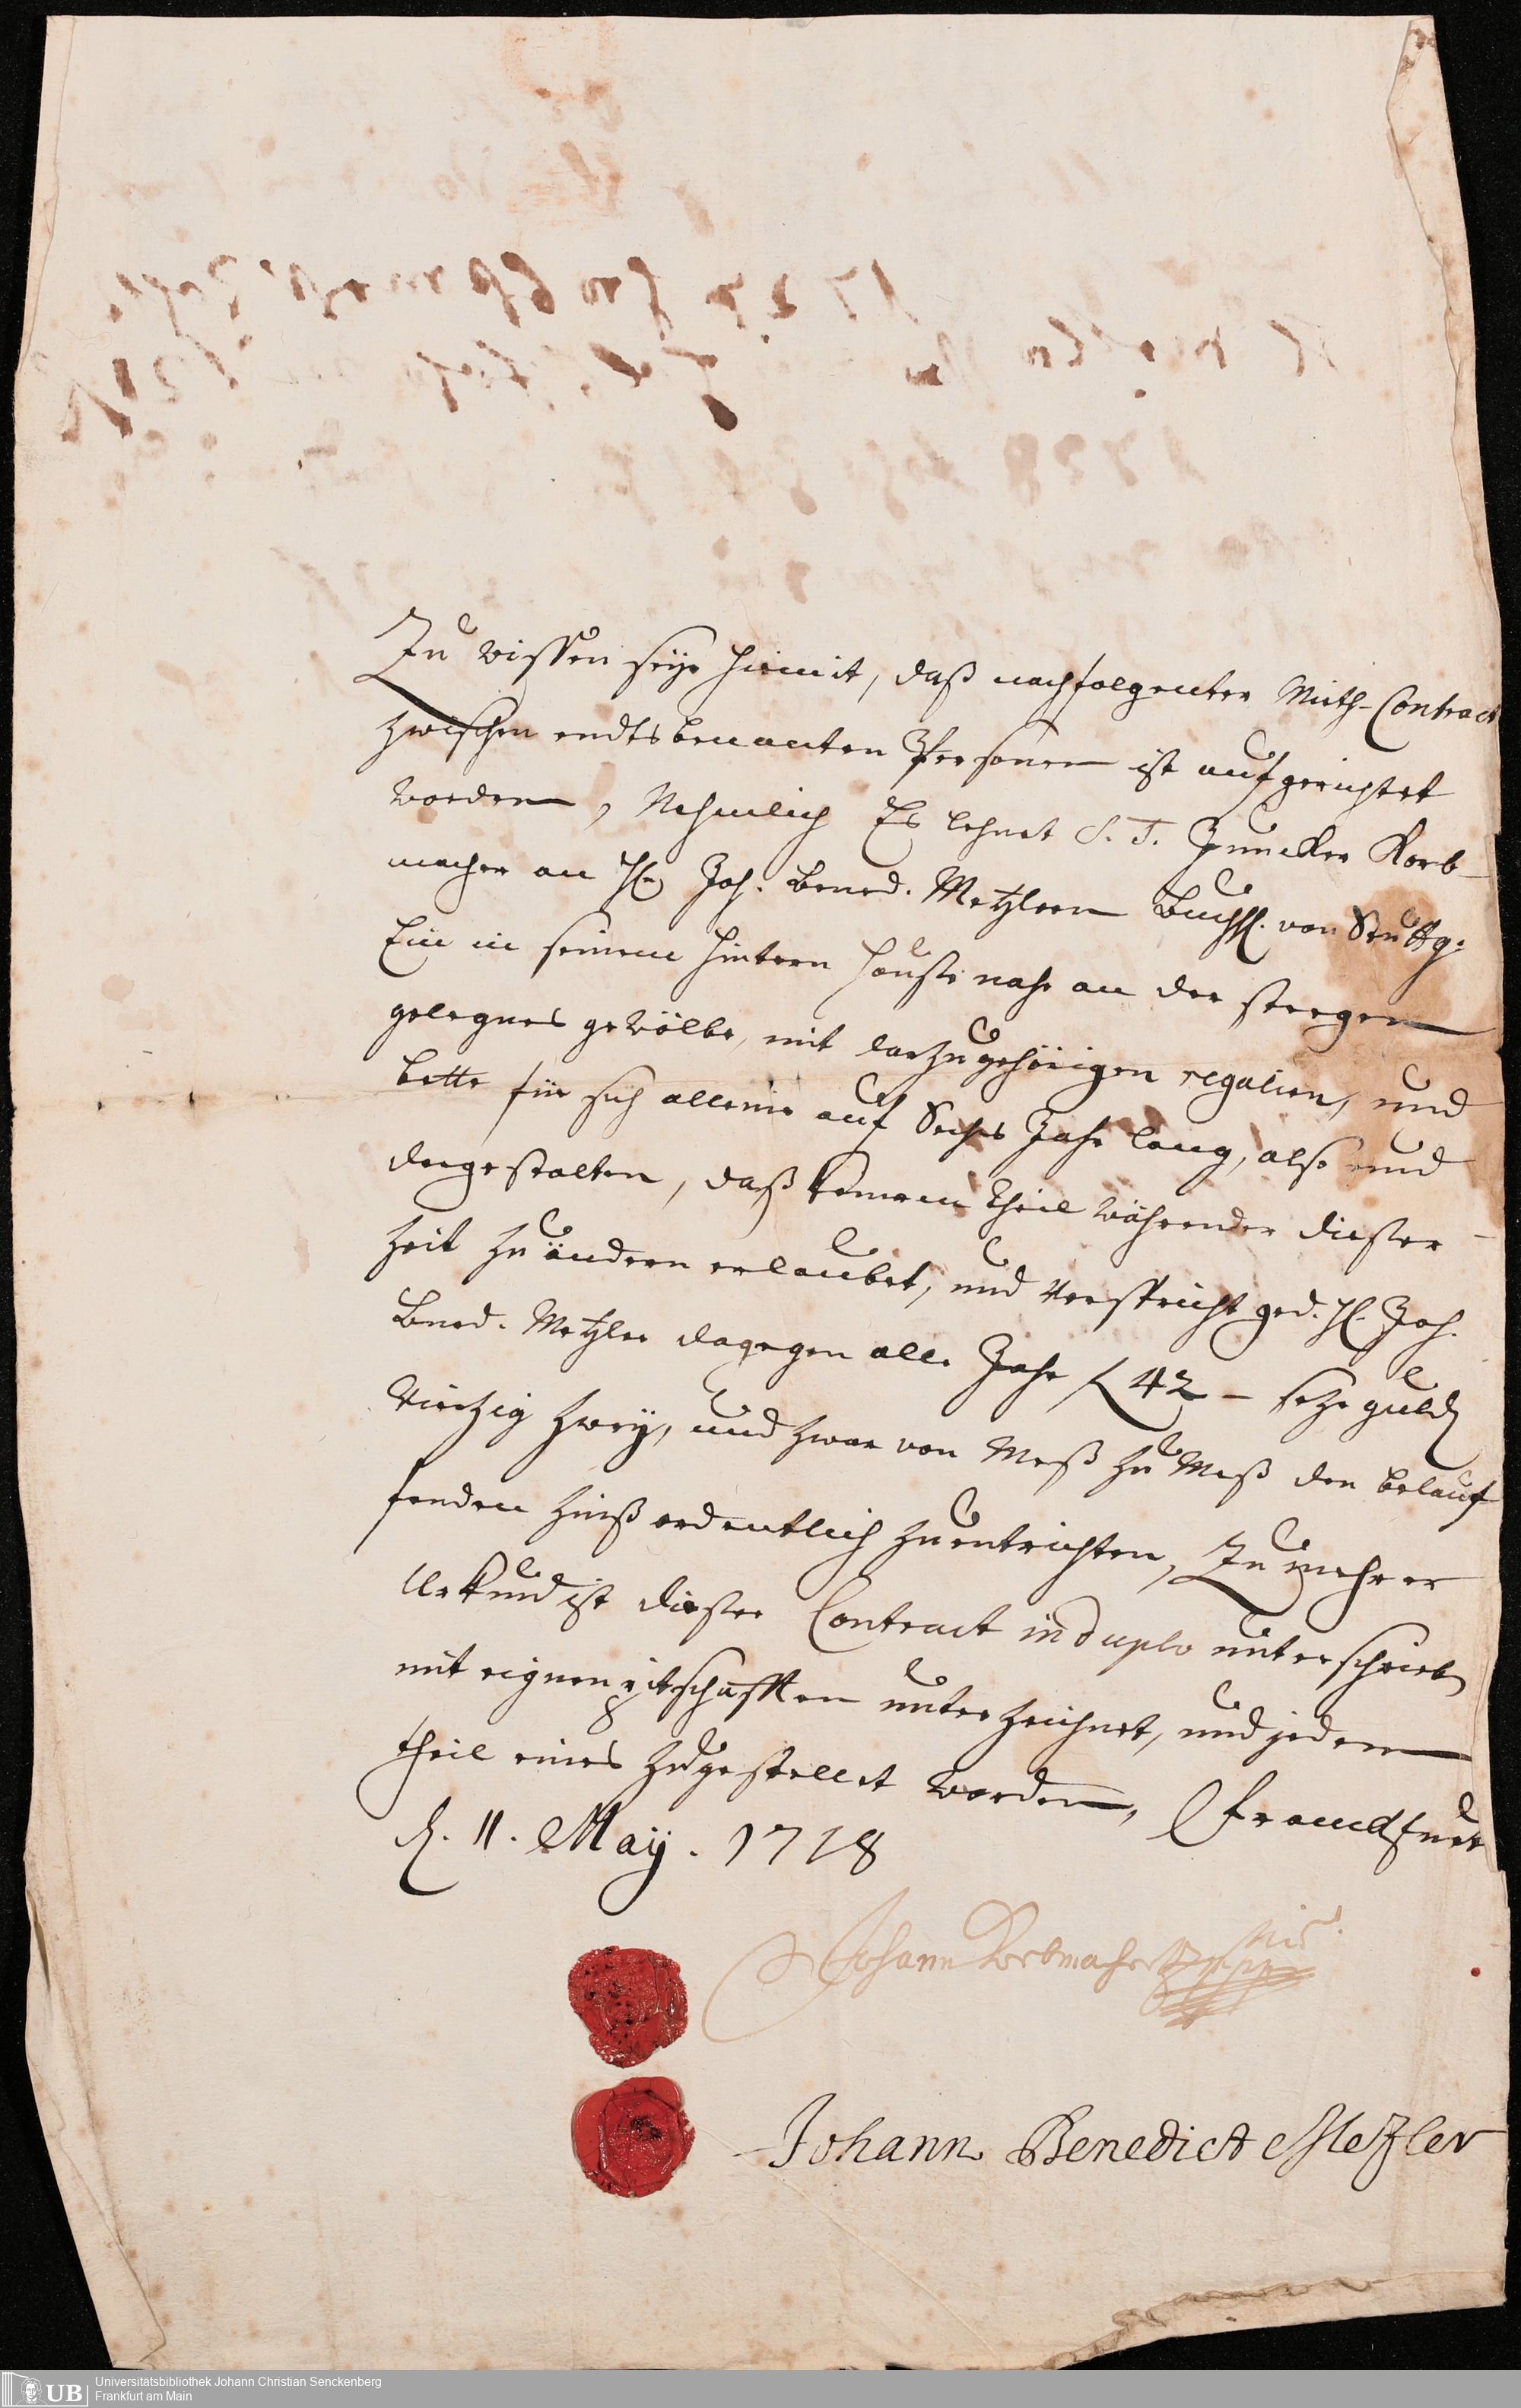 Zu wissen seye hiemit, daß nachfolgenter Mieth-Contract
zwischen endtsbenanten Persohnen ist aufgerichtet
worden, Nehmlich Es lehnet S. T. Juncker Korb-
macher an H. Joh. Bened. Metzlern Buchh. von Stuttg:
Ein in seinem hintern Hauße nahe an der steegen
gelegnes gewölbe, mit darzugehörigen regalien, und
bette für sich alleine auf Sechs Jahr lang, also und
dergestalten, daß keinem theil währender dießer
Zeit zu ändern erlaubet, und verspricht ged. H. Joh.
Bened. Metzler dagegen alle Jahr f 42 – sage guld
Viertzig zwey, und zwar von Meß zu Meß den belauf
fenden Zinß ordentlich zu entrichten, Zu mehrer
Urkund ist dießer Contract in duplo unterschrieben
mit eignen pitschafften unterzeichnet, und jedem
theil eines zugestellet worden, Franckfurt
d. 11. May. 1718
Johann Korbmacher
Johann Benedict Mezler
UB
Universitätsbibliothek Johann Christian Senckenberg
Frankfurt am Main